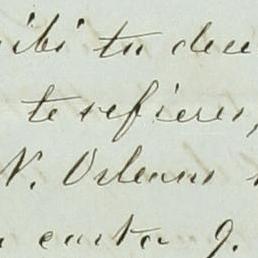 ibi tu dec
te refieres,
N. Orleans
carta q.